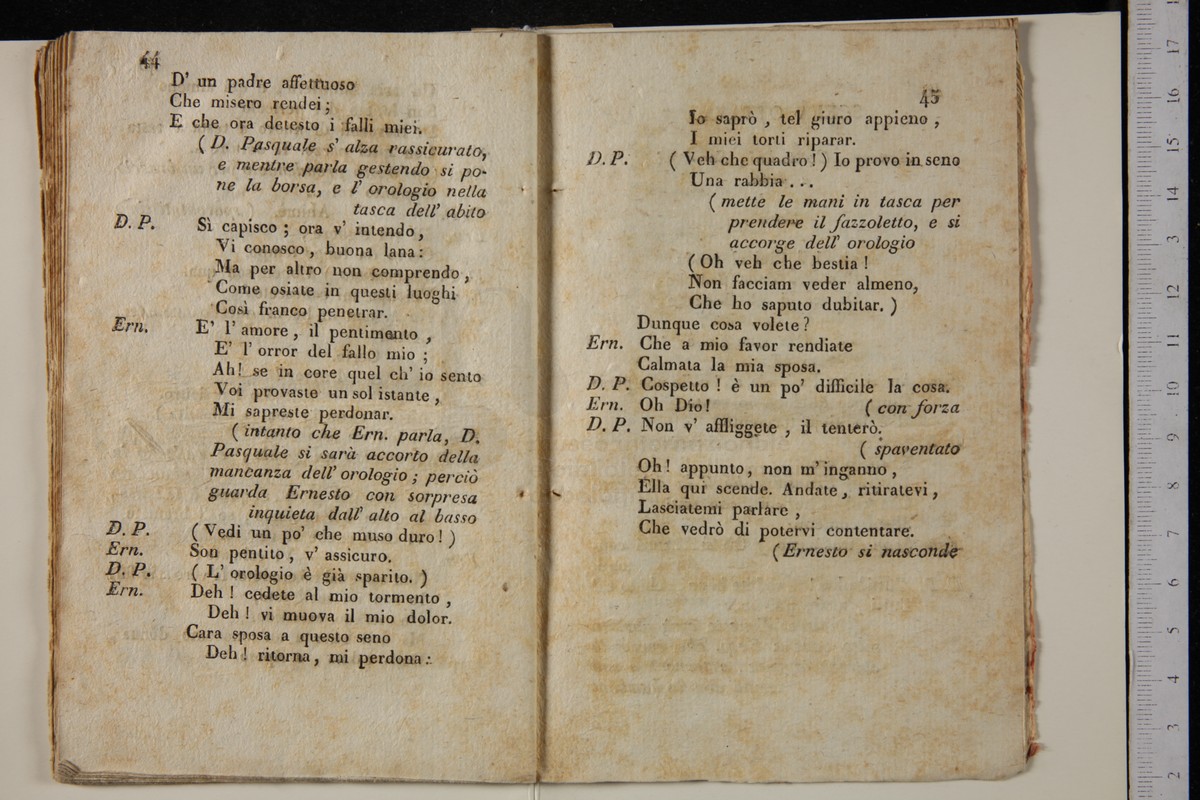 44
D' un padre affettuoso
Che misero rendei;
E che ora detesto i falli miei.
( D. Pasquale s' alza rassicurato,
e mentre parla gestendo si po-
ne la borsa, e l' orologio nella
tasca dell' abito
D. P. Sì capisco ; ora v' intendo,
Vi conosco, buona lana:
Ma per altro non comprendo,
Come osiate in questi luoghi
Così franco penetrar.
Ern. E' l' amore, il pentimento,
E' l' orror del fallo mio ;
Ah! se in core quel ch' io sento
Voi provaste un sol istante,
Mi sapreste perdonar.
( intanto che Ern. parla, D.
Pasquale si sarà accorto della
mancanza dell' orologio ; perciò
guarda Ernesto con sorpresa
inquieta dall' alto al basso
D. P. ( Vedi un po' che muso duro! )
Ern. Son pentito, v' assicuro.
D. P. ( L' orologio è già sparito. )
Ern. Deh ! cedete al mio tormento,
Deh ! vi muova il mio dolor.
Cara sposa a questo seno
Deh ! ritorna, mi perdona:
45
Io saprò, tel giuro appieno,
I miei torti riparar.
D. P. ( Veh che quadro! ) Io provo in seno
Una rabbia . . .
( mette le mani in tasca per
prendere il fazzoletto, e si
accorge dell' orologio
( Oh veh che bestia !
Non facciam veder almeno,
Che ho saputo dubitar. )
Dunque cosa volete?
Ern. Che a mio favor rendiate
Calmata la mia sposa.
D. P. Cospetto ! è un po' difficile la cosa.
Ern. Oh Dio! ( con forza
D. P. Non v' affliggete, il tenterò.
( spaventato
Oh! appunto, non m' inganno,
Ella qui scende. Andate, ritiratevi,
Lasciatemi parlare,
Che vedrò di potervi contentare.
( Ernesto si nasconde
17
16
15
14
13
12
11
10
9
8
7
6
5
4
3
2